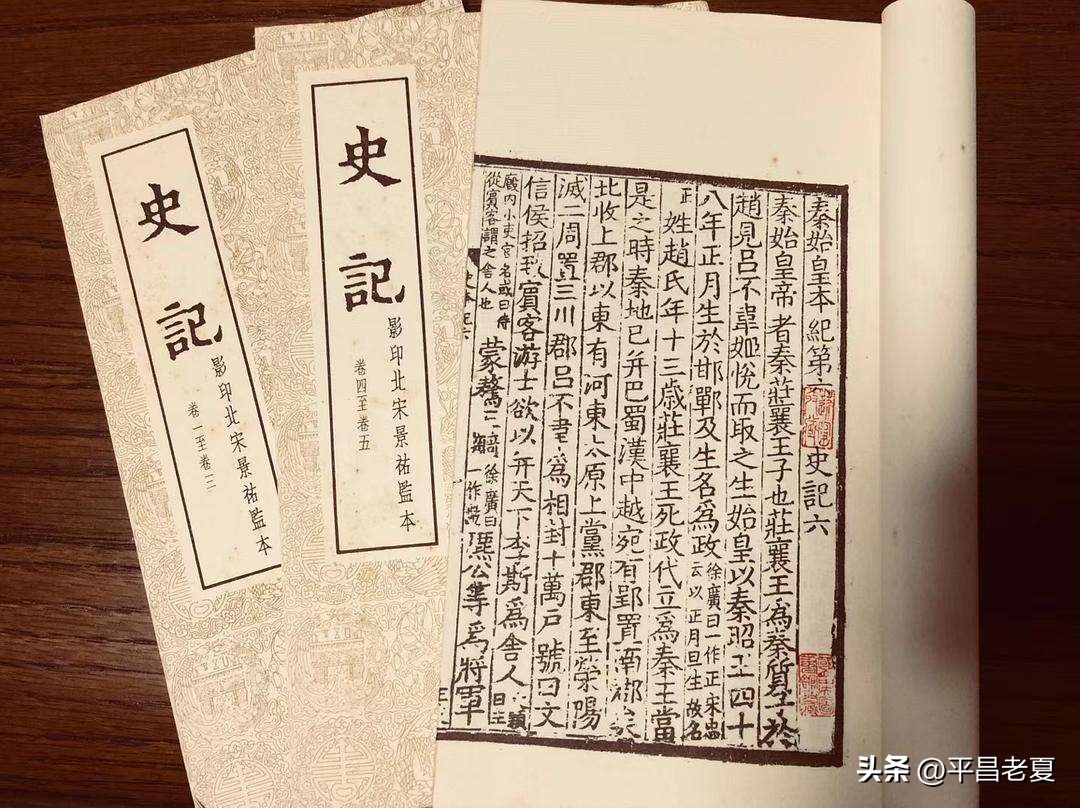 史記
影印北宋景祐監本
卷一至卷三
史記
影印北宋景祐監本
卷四至卷五
秦始皇本紀第六 史記六
秦始皇帝者秦莊襄王子也莊襄王爲秦質子於
趙見呂不韋姬悅而取之生始皇以秦昭王四十
八年正月生於邯鄲及生名爲政徐廣曰一作正宋忠云以正月旦生故名
正姓趙氏年十三歲莊襄王死政代立爲秦王當
是之時秦地已并巴蜀漢中越宛有郢置南郡矣
北收上郡以東有河東太原上黨郡東至滎陽
滅二周置三川郡呂不韋爲相封十萬戶號曰文
信侯招致賓客游士欲以并天下李斯爲舍人穎曰主
廄內小吏官名或曰侍從賓客謂之舍人也蒙驁王齮徐廣曰一作公等爲將軍
头条 @平昌老夏